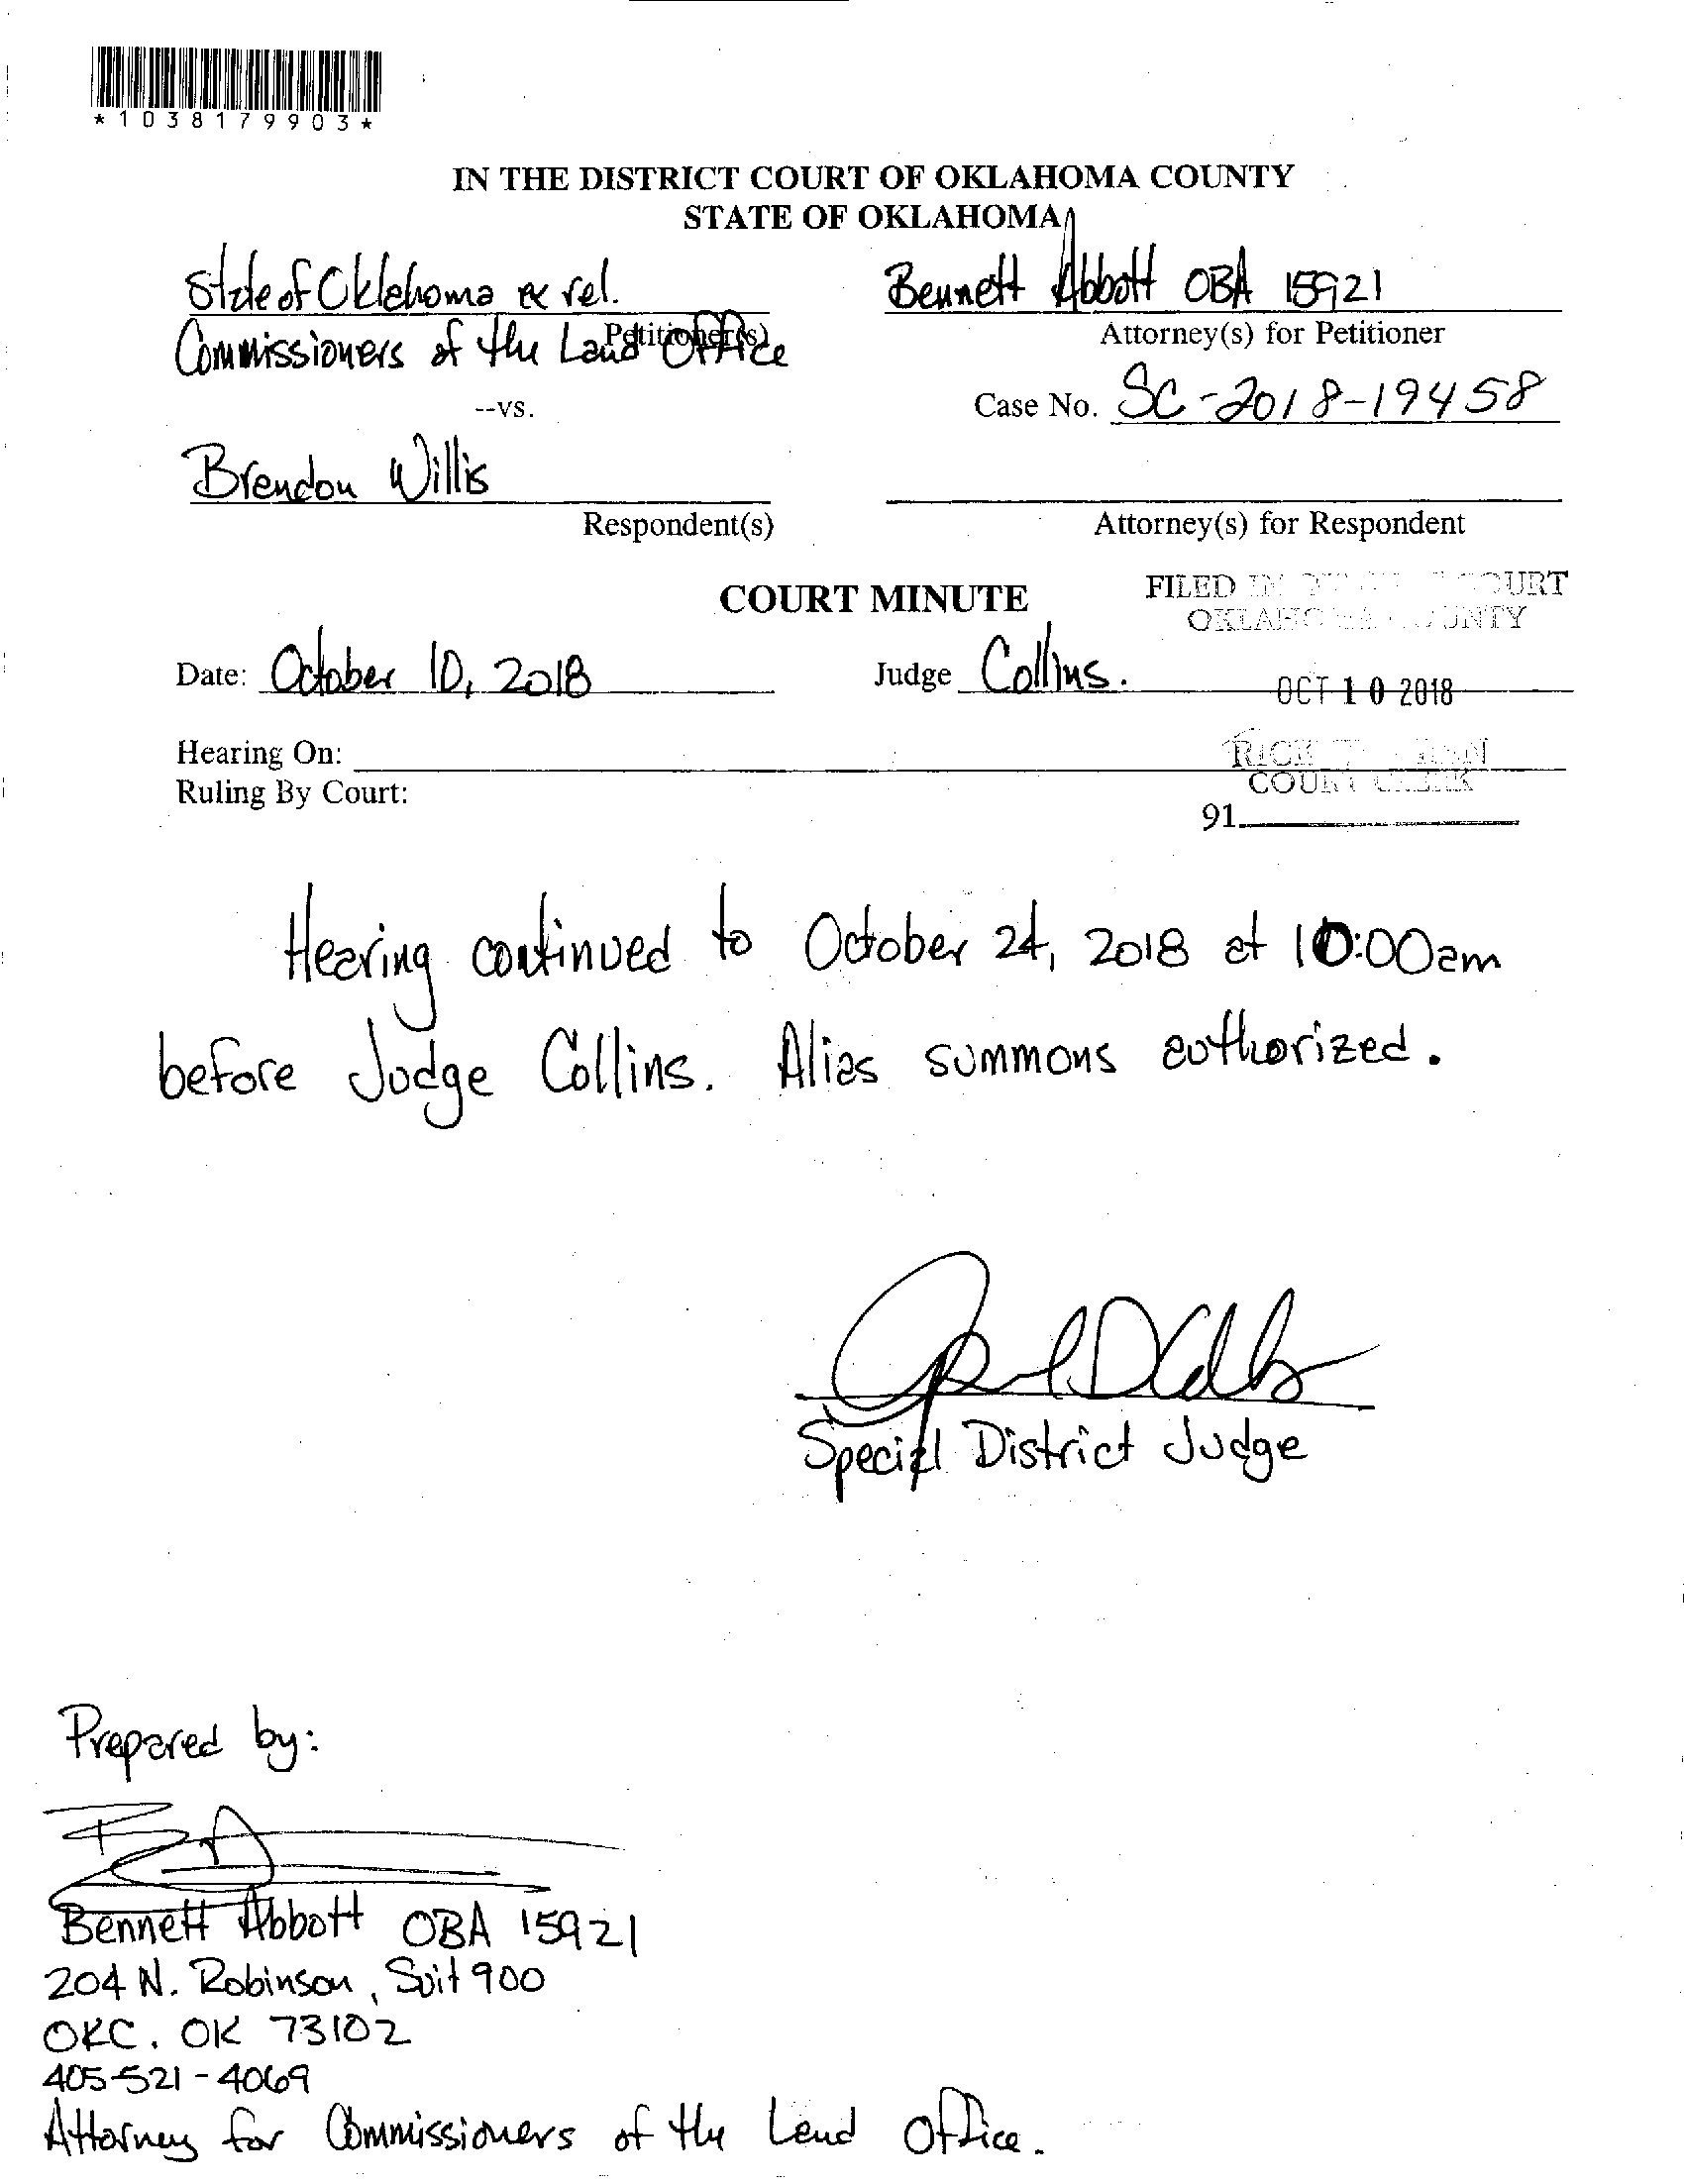 *1038179903*
IN THE DISTRICT COURT OF OKLAHOMA COUNTY
STATE OF OKLAHOMA
State of Oklahoma ex rel.
Commissioners of the Land Office
Petitioner(s)
Bennett Abbott OBA 15921
Attorney(s) for Petitioner
--vs.
Case No. SC-2018-19458
Brendon Willis
Respondent(s)
Attorney(s) for Respondent
COURT MINUTE
FILED IN COURT
Date: October 10, 2018
Judge Collins.
OCT 10 2018
Hearing On:
Ruling By Court:
COURT CLERK
91
Hearing continued to October 24, 2018 at 10:00am
before Judge Collins. Alias summons authorized.
Special District Judge
Prepared by:
Bennett Abbott OBA 15921
204 N. Robinson, Suit 900
OKC. OK 73102
405-521-4069
Attorney for Commissioners of the Land Office.